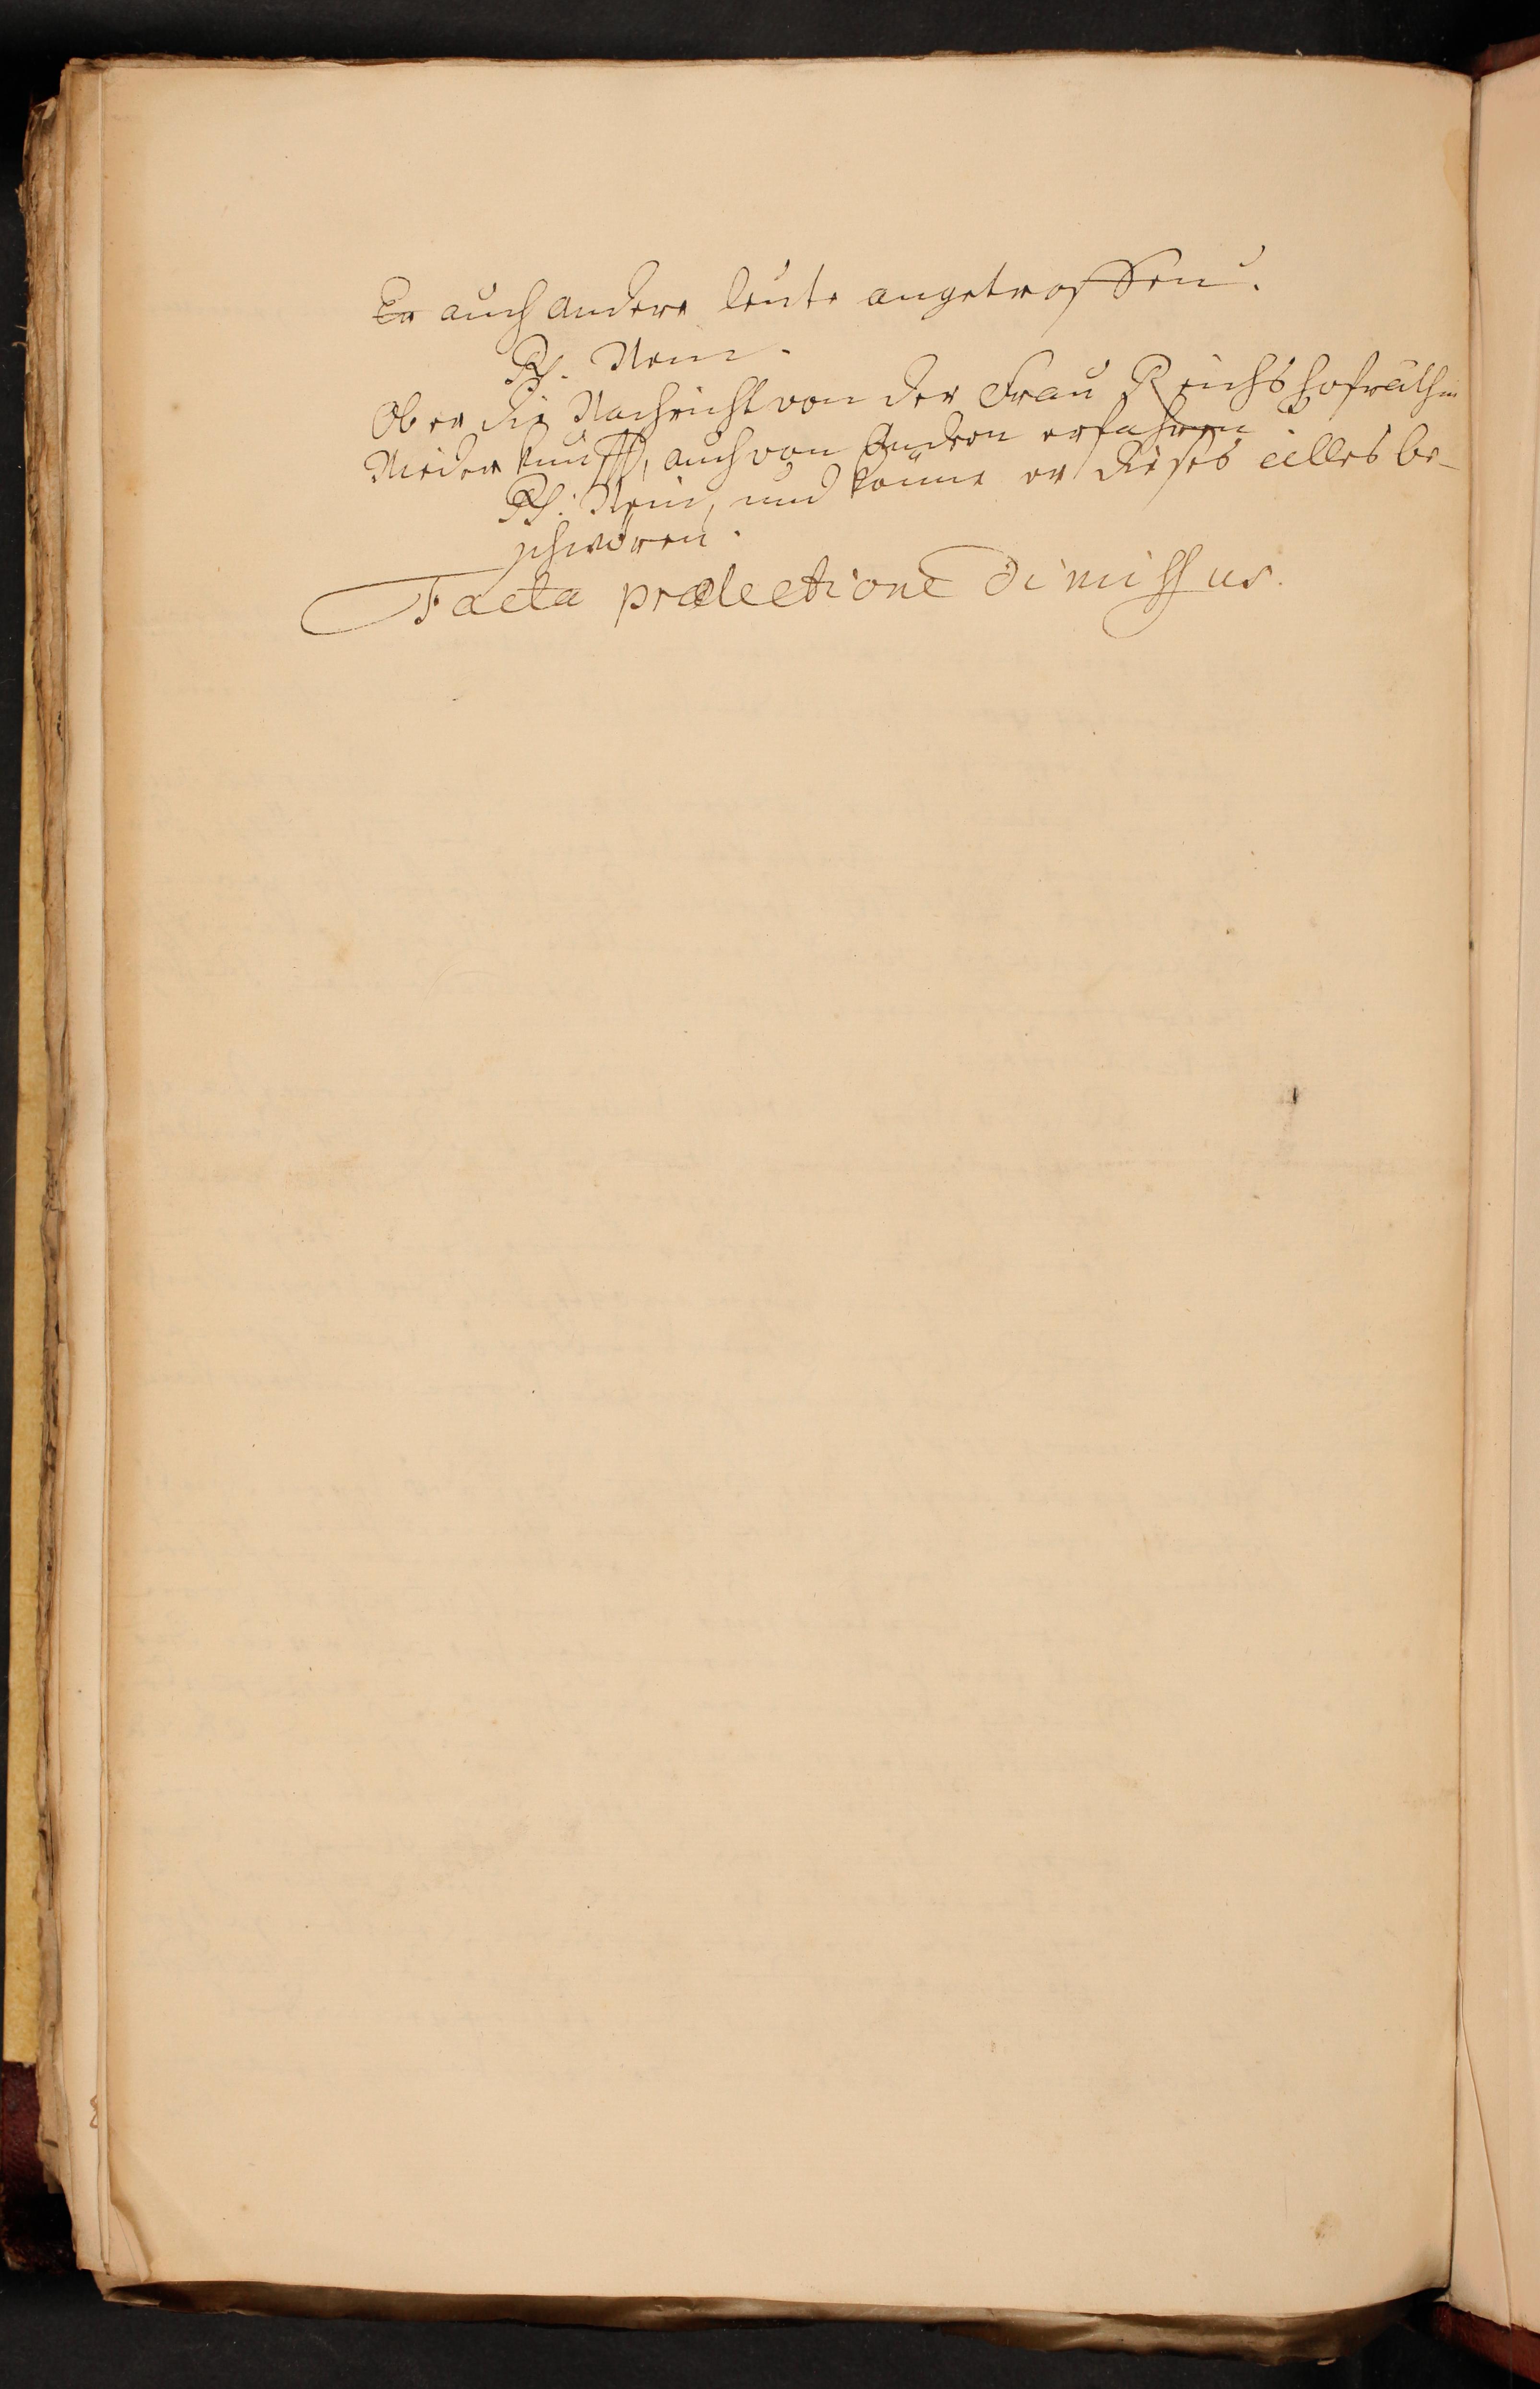 Er auch andere leute angetroffen.
Rs. Nein.
Ob er die Nachricht von der Frau Reichshofräthin
Niederkunfft, auch von andern erfahren?
Rs. Nein, und könne er dieses alles be-
schwören.
Facta prælectione dimissus.